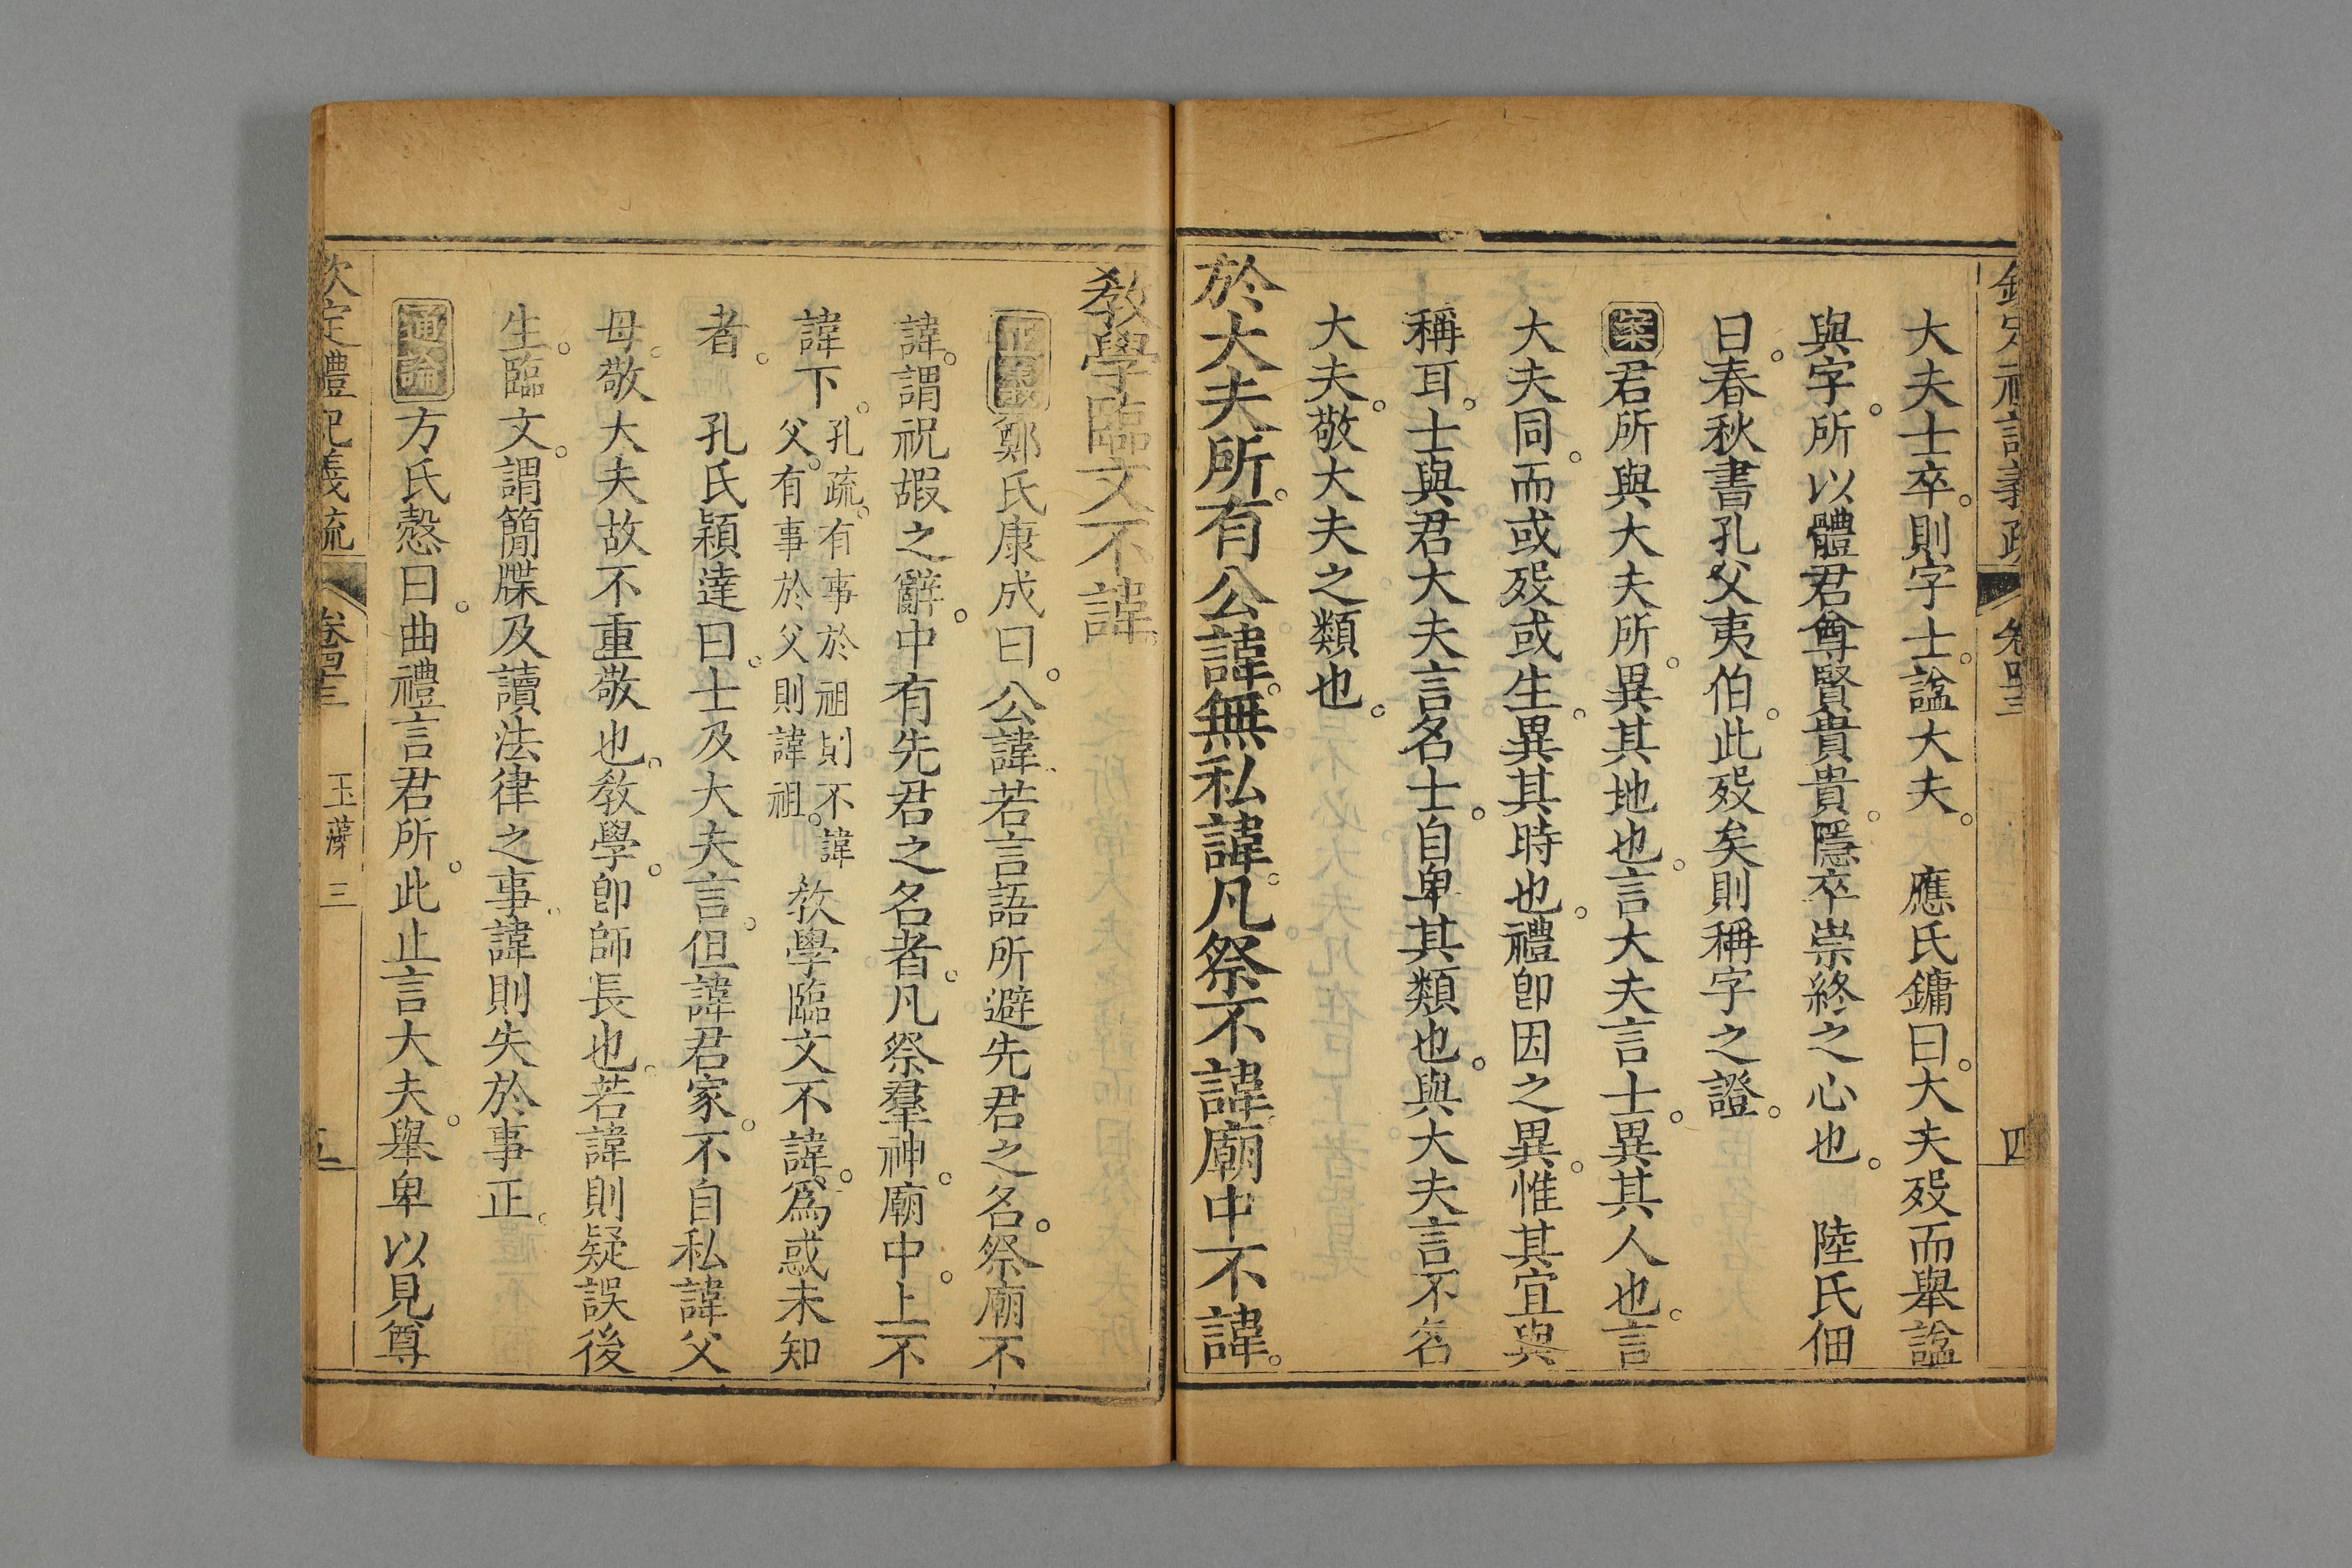 欽定禮記義疏 卷四十三 四
大夫士卒。則字士。諡大夫。 應氏鏞曰。大夫歿而舉諡
與字。所以體君尊賢貴貴。隱卒崇終之心也。 陸氏佃
曰。春秋書孔父夷伯。此歿矣則稱字之證。
案君所與大夫所。異其地也。言大夫言士。異其人也。言
大夫同。而或歿或生。異其時也。禮卽因之異。惟其宜與
稱耳。士與君大夫言名士。自卑其類也。與大夫言不名
大夫。敬大夫之類也。
於大夫所。有公諱。無私諱。凡祭不諱。廟中不諱。
教學臨文不諱。
正義鄭氏康成曰。公諱。若言語所避先君之名。祭廟不
諱。謂祝嘏之辭。中有先君之名者。凡祭羣神。廟中。上不
諱下。孔疏。有事於祖則不諱父。有事於父則諱祖。教學臨文不諱。爲惑未知
者。 孔氏穎達曰。士及大夫言。但諱君家。不自私諱父
母。敬大夫故不重敬也。教學。卽師長也。若諱則疑誤後
生。臨文。謂簡牒及讀法律之事。諱則失於事正。
通論方氏慤曰。曲禮言君所。此止言大夫。舉卑以見尊
欽定禮記義疏 卷四十三 玉藻 三 五